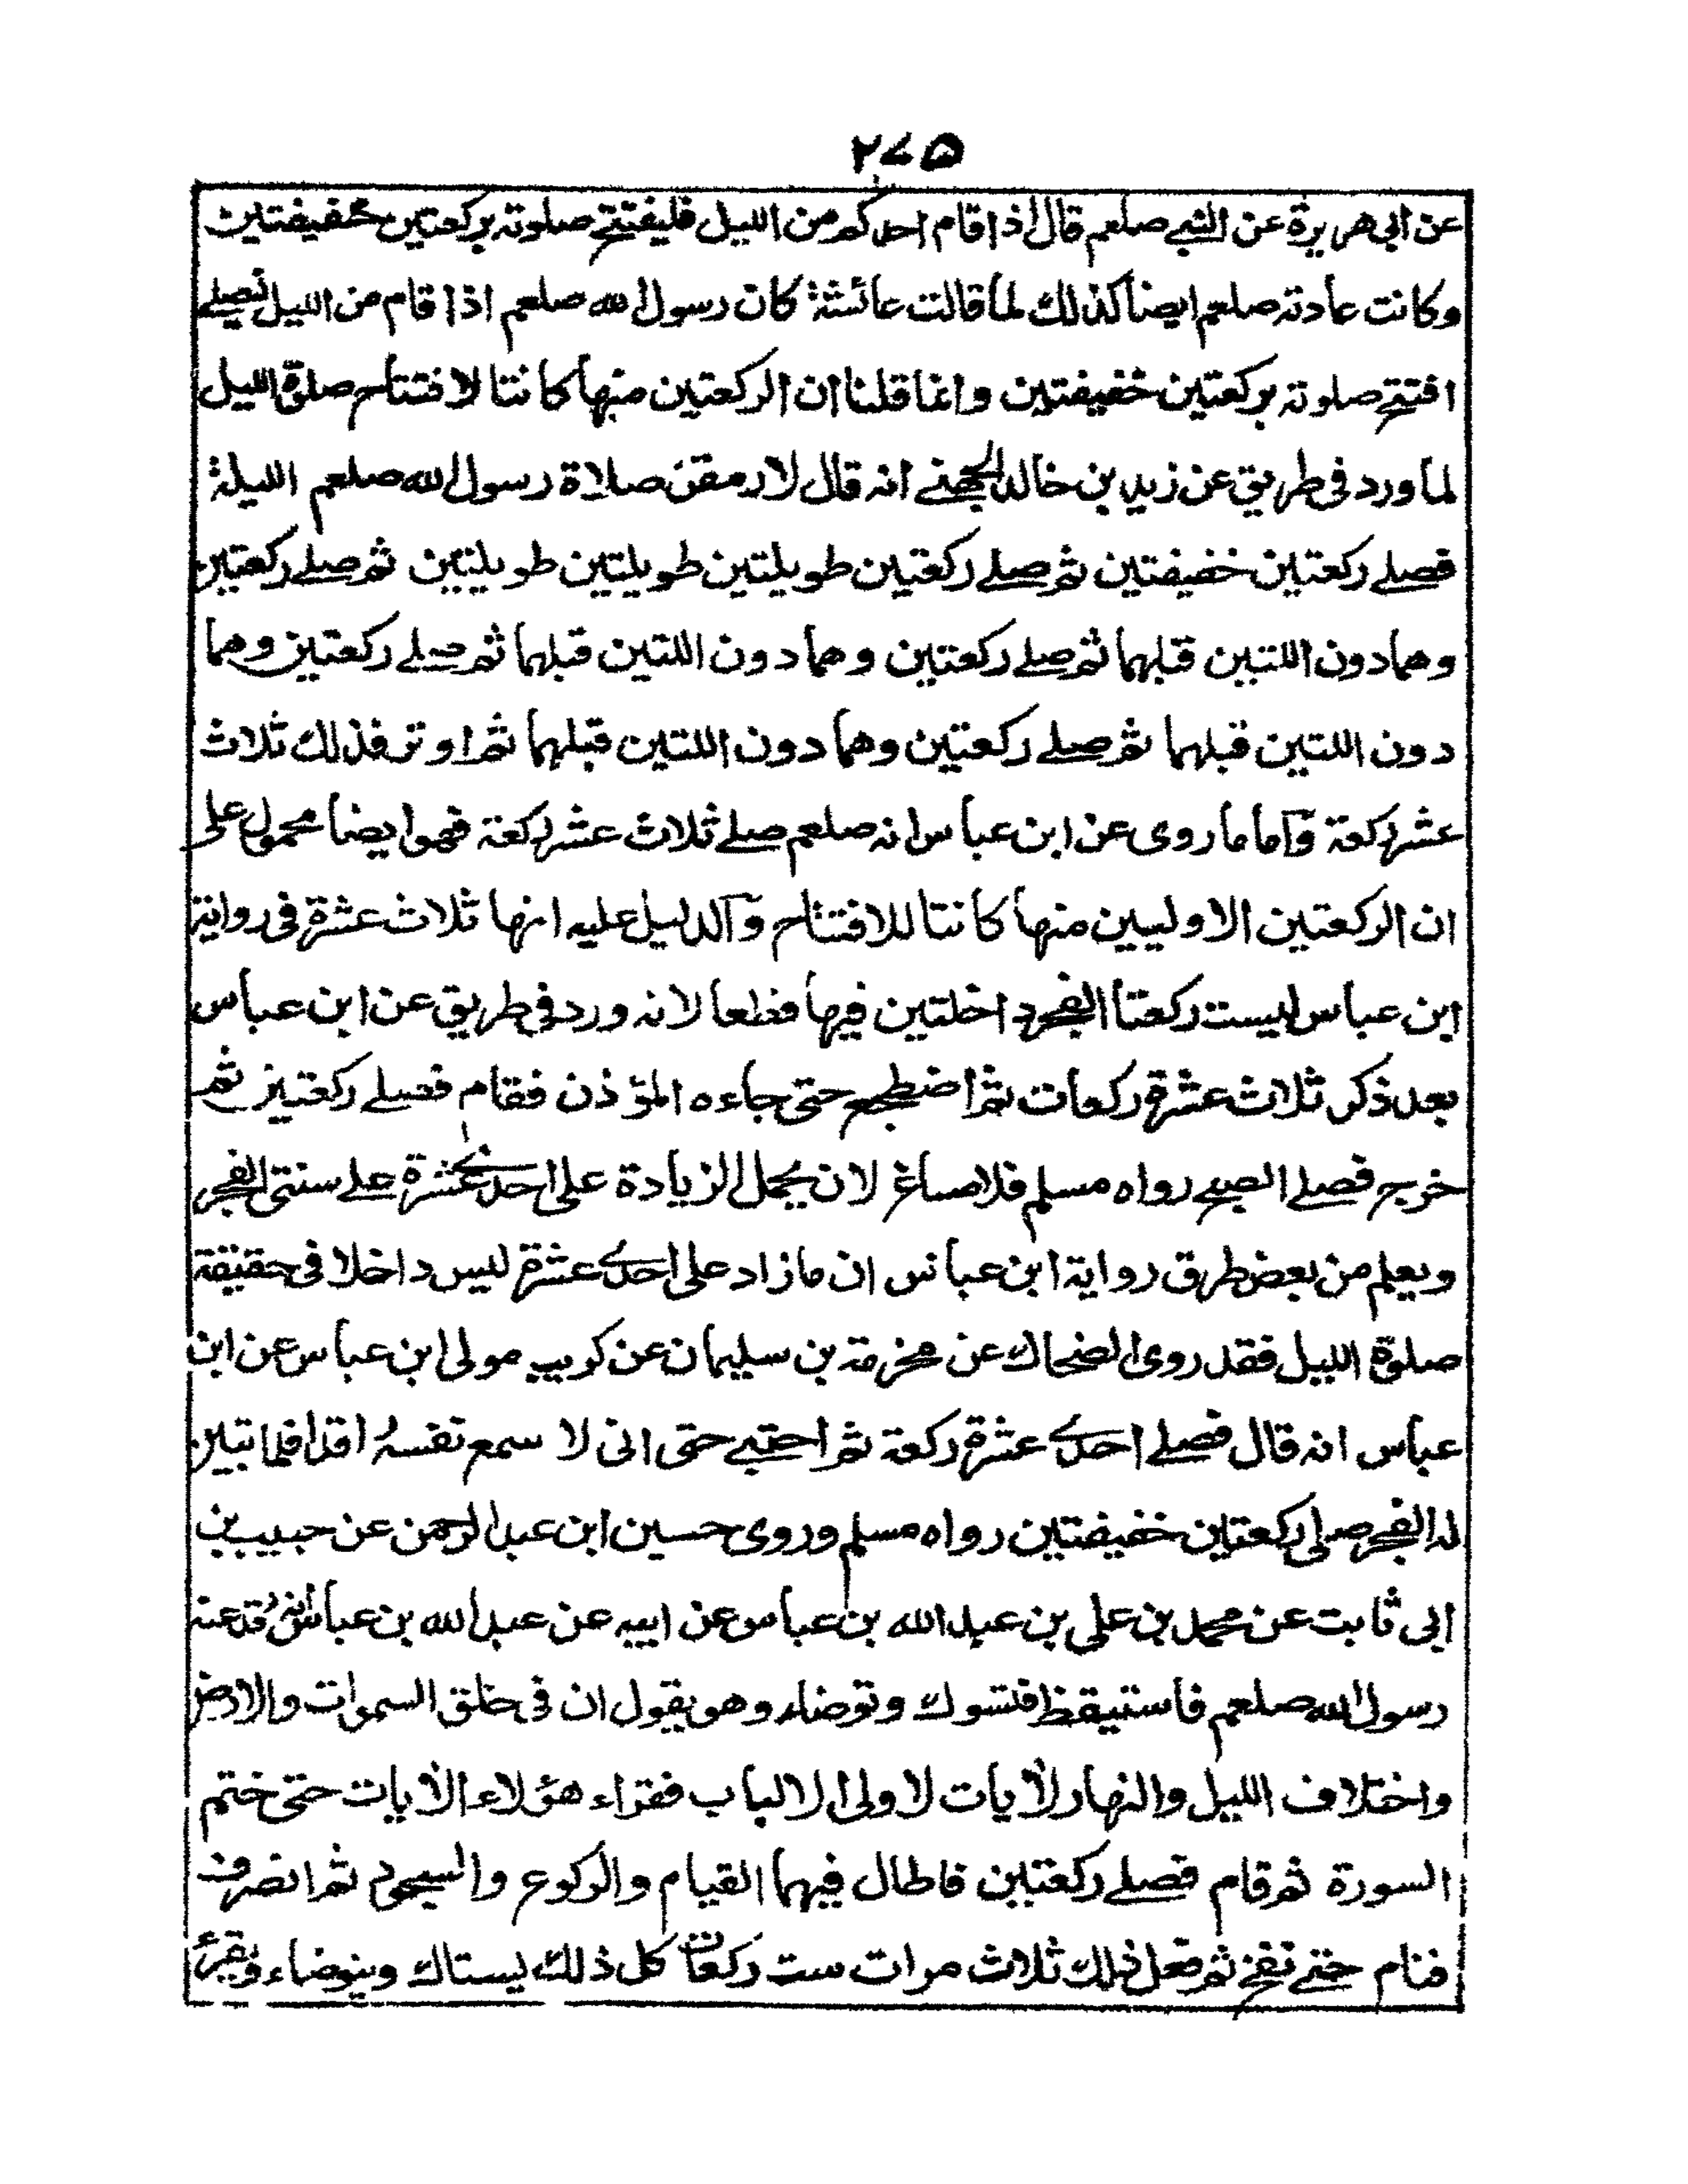 ٢٧٥
عن ابى هريرة عن النبے صلعم قال اذا قام احدكم من الليل فليفتتح صلوته بركعتين خفيفتين
وكانت عادته صلعم ايضا كذلك لما قالت عائشة كان رسول الله صلعم اذا قام من الليل ليصلے
افتتح صلوته بركعتين خفيفتين وانما قلنا ان الركعتين منها كانتا لافتتاح صلوة الليل
لما ورد فى طريق عن زيد بن خالد الجهنے انه قال لارمقن صلاة رسول الله صلعم الليلة
فصلے ركعتين خفيفتين ثم صلے ركعتين طويلتين طويلتين طويلتين ثم صلے ركعتين
وهما دون اللتين قبلهما ثم صلے ركعتين وهما دون اللتين قبلهما ثم صلے ركعتين وهما
دون اللتين قبلهما ثم صلے ركعتين وهما دون اللتين قبلهما ثم اوتر فذلك ثلاث
عشر ركعة وآما ما روى عن ابن عباس انه صلعم صلے ثلاث عشر ركعة فهو ايضا محمول على
ان الركعتين الاوليين منها كانتا للافتتاح وآلدليل عليه انها ثلاث عشرة فى رواية
ابن عباس ليست ركعتا الفجر داخلتين فيها قطعا لانه ورد فى طريق عن ابن عباس
بعد ذكر ثلاث عشرة ركعات ثم اضطجع حتى جاءه المؤذن فقام فصلے ركعتين ثم
خرج فصلے الصبح رواه مسلم فلا مساغ لان يحمل الزيادة على احدے عشرة علے سنتى الفجر
ويعلم من بعض طرق رواية ابن عباس ان ما زاد على احدے عشرة ليس داخلا فى حقيقة
صلوة الليل فقد روى الضحاك عن مخرمة بن سليمان عن كريب مولى ابن عباس عن ابن
عباس انه قال فصلے احدے عشرة ركعة ثم احتبے حتى انى لا سمع نفسهُ اقدا فلما تبين
له الفجر صلى ركعتين خفيفتين رواه مسلم وروى حسين ابن عبد الرحمن عن حبيب بن
ابى ثابت عن محمد بن على بن عبد الله بن عباس عن ابيه عن عبد الله بن عباس انه رقد عند
رسول الله صلعم فاستيقظ فتسوك وتوضاء وهو يقول ان فى خلق السموات والارض
واختلاف الليل والنهار لأيات لاولى الالباب فقراء هؤلاء الأيات حتى ختم
السورة ثم قام فصلے ركعتين فاطال فيهما القيام والركوع والسجود ثم انصرف
فنام حتے نفخ ثم فعل ذلك ثلاث مرات ست ركعات كل ذلك يستاك ويتوضاء ويقرء